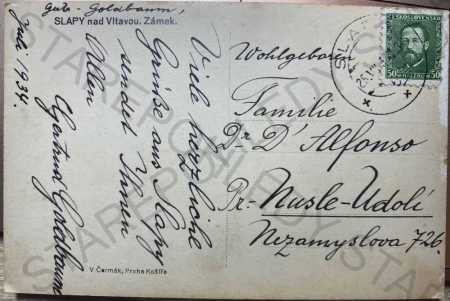 Gertr. Goldbaum,
SLAPY nad Vltavou. Zámek.
Juli 1934.
Viele herzliche
Grüsse aus Slapy
sendet Ihnen
Allen
Gertrud Goldbaum
V Čermák, Praha Košíře
Wohlgeboren
Familie
Dr D'Alfonso
Pr-Nusle-Udolí
Nezamyslova 726.
ČESKOSLOVENSKO
50 50
STARÉ POHLEDY